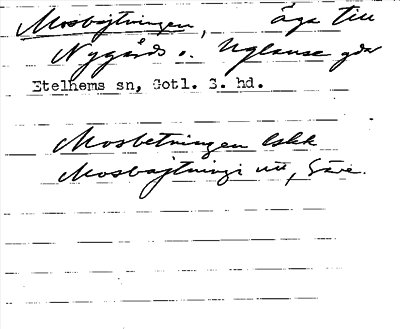 Mosbøjtningen, äga till
Nygårds o. Uglause gdar
Etelhems sn, Gotl. S. hd.
Mosbetningen lskk
Mosbøjtningi utt, Säve.